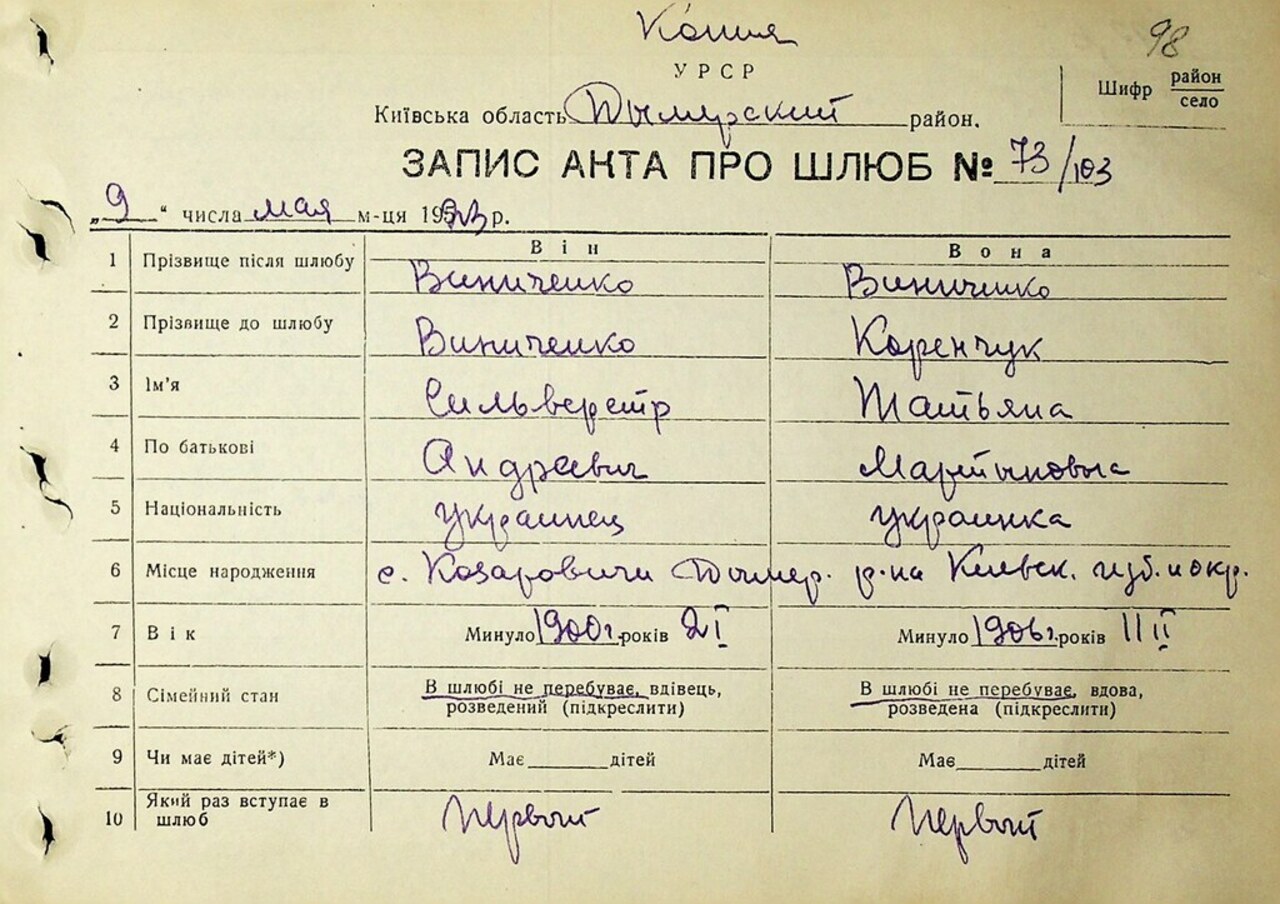 Копия
98
УРСР
Шифр район село
Київська область Дымерский район.
ЗАПИС АКТА ПРО ШЛЮБ № 73/103
„9“ числа мая м-ця 19 р.
Він Вона
1 Прізвище після шлюбу Виниченко Виниченко
2 Прізвище до шлюбу Виниченко Коренчук
3 Ім'я Сильверстр Татьяна
4 По батькові Андревич Мартыновна
5 Національність украинец украинка
6 Місце народження с. Козаровичи Дымер. р-на Киевск. губ. и окр.
7 Вік Минуло 1900 г. років 2 I Минуло 1906 г. років 11 II
8 Сімейний стан В шлюбі не перебуває, вдівець, В шлюбі не перебуває, вдова,
розведений (підкреслити) розведена (підкреслити)
9 Чи має дітей*) Має дітей Має дітей
10 Який раз вступає в шлюб первый первый